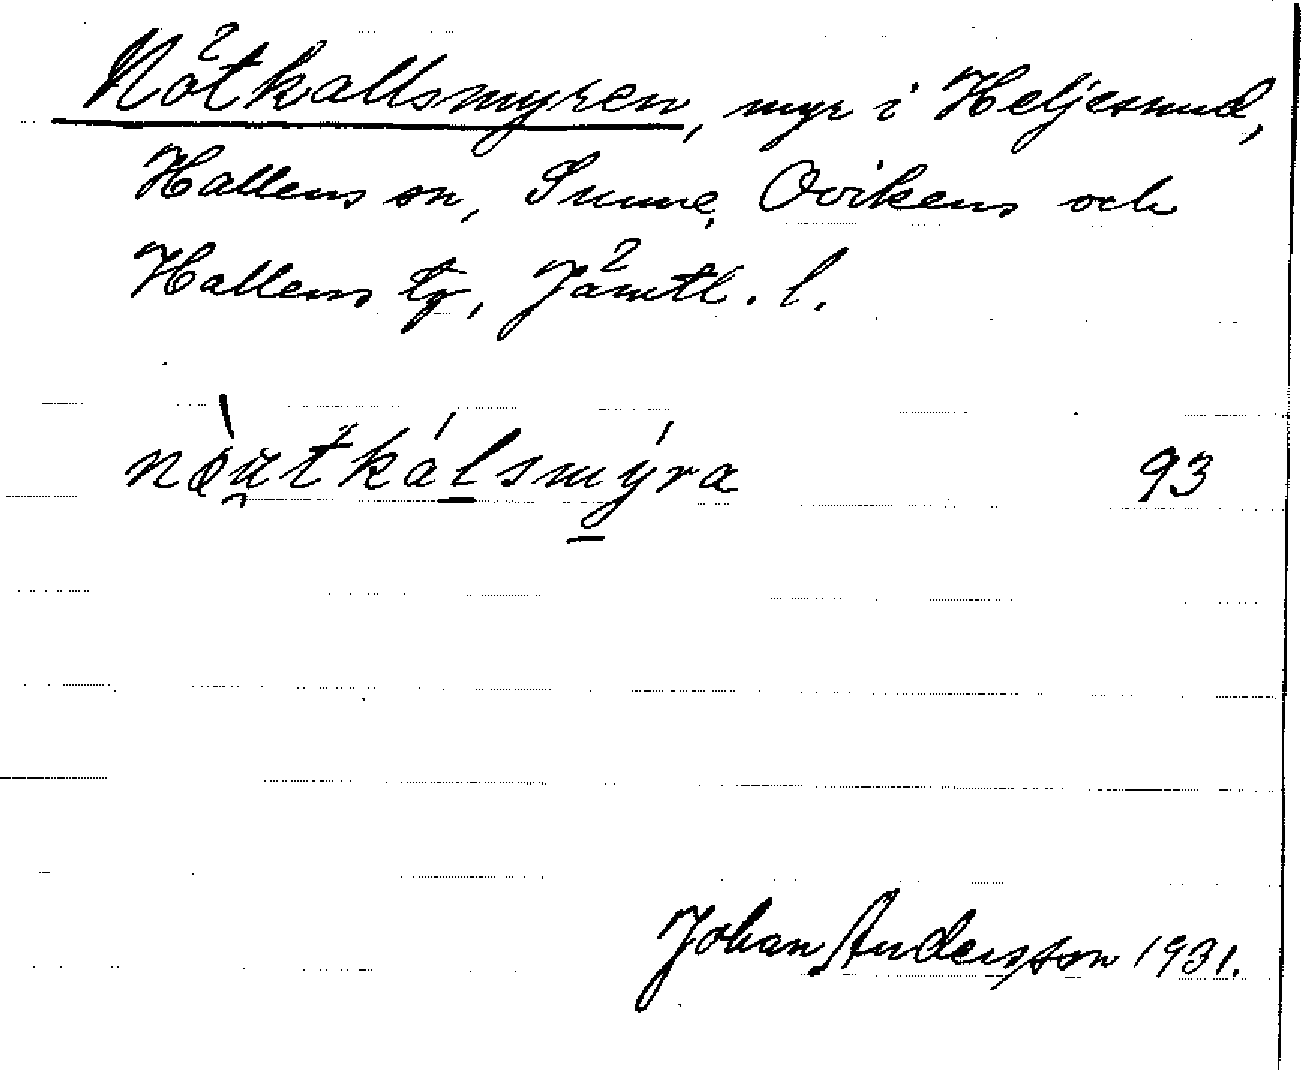 Nötkallsmyren, myr i Heljesund,
Hallens sn, Sunne, Ovikens och
Hallens tg, Jämtl. l.
nøu̯tkálsmýra 93
Johan Andersson 1931.